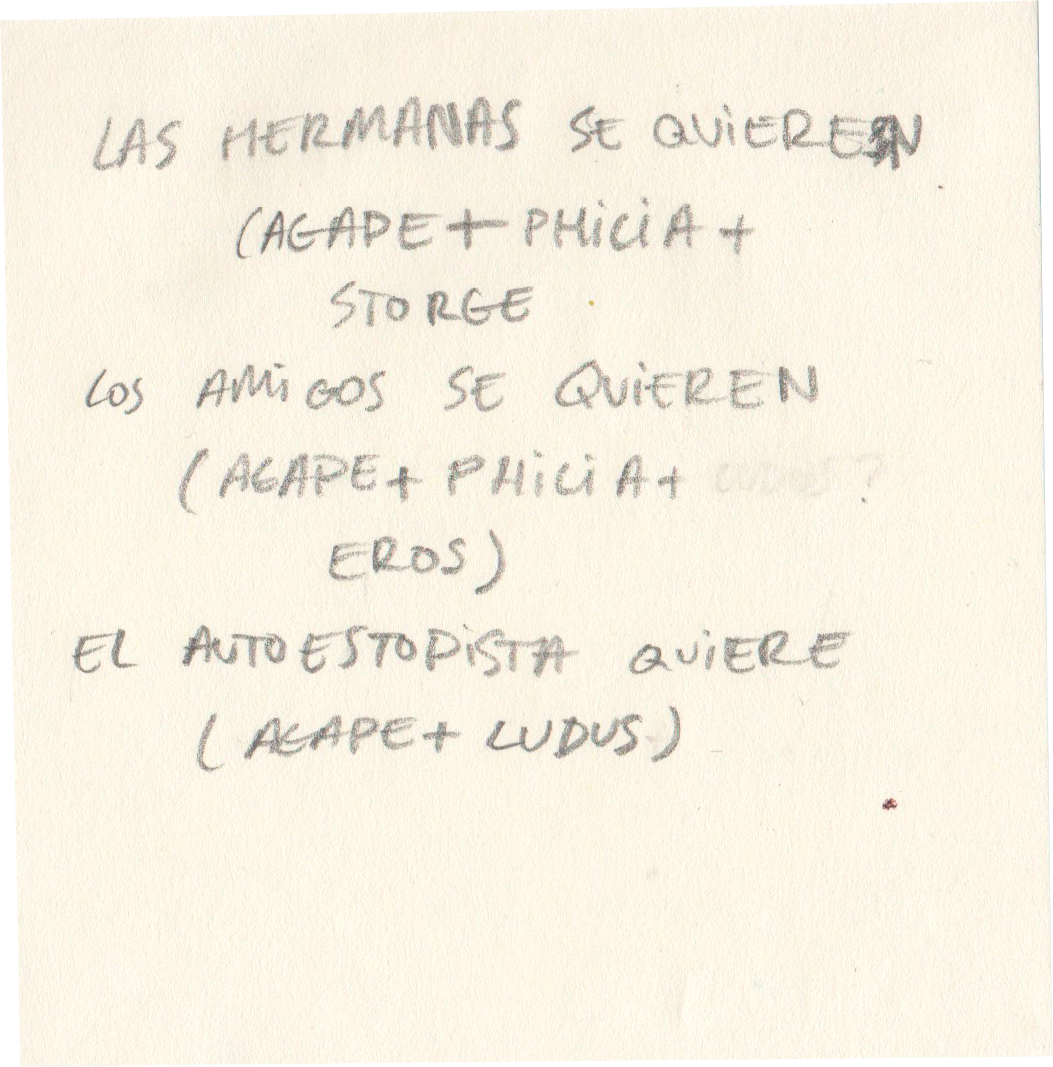 LAS HERMANAS SE QUIEREN
(AGAPE + PHILIA +
STORGE
LOS AMIGOS SE QUIEREN
(AGAPE + PHILIA + ?
EROS)
EL AUTOESTOPISTA QUIERE
(AGAPE + LUDUS)